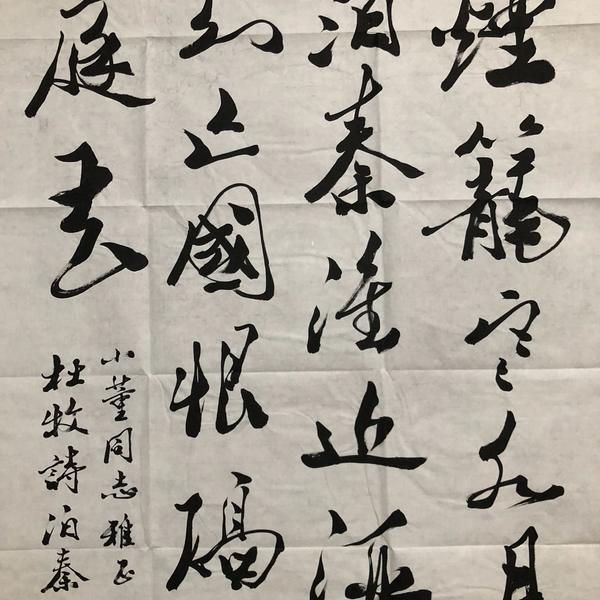 煙籠寒水月
泊秦淮近酒
知亡國恨隔
庭花
小董同志雅正
杜牧詩泊秦